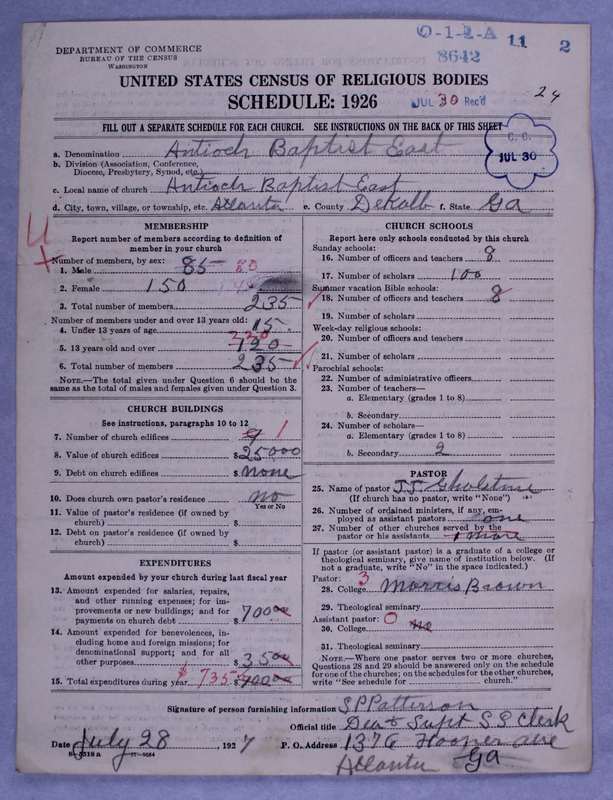 DEPARTMENT OF COMMERCE
BUREAU OF THE CENSUS
WASHINGTON
O-1-2-A 11 2
8642
UNITED STATES CENSUS OF RELIGIOUS BODIES
SCHEDULE: 1926
JUL 30 Rec'd
24
FILL OUT A SEPARATE SCHEDULE FOR EACH CHURCH. SEE INSTRUCTIONS ON THE BACK OF THIS SHEET
C. C.
JUL 30
a. Denomination Antioch Baptist East
b. Division (Association, Conference, Diocese, Presbytery, Synod, etc.)
c. Local name of church Antioch Baptist East
d. City, town, village, or township, etc. Atlanta e. County DeKalb f. State Ga
MEMBERSHIP
Report number of members according to definition of
member in your church
Number of members, by sex:
1. Male 85 80
2. Female 150
3. Total number of members 235
Number of members under and over 13 years old:
4. Under 13 years of age 15
5. 13 years old and over 120 220
6. Total number of members 235
NOTE.—The total given under Question 6 should be
same as the total of males and females given under Question 3.
CHURCH BUILDINGS
See instructions, paragraphs 10 to 12
7. Number of church edifices 1
8. Value of church edifices $25000
9. Debt on church edifices $ none
10. Does church own pastor's residence no
Yes or No
11. Value of pastor's residence (if owned by
church) $
12. Debt on pastor's residence (if owned by
church) $
EXPENDITURES
Amount expended by your church during last fiscal year
13. Amount expended for salaries, repairs,
and other running expenses; for im-
provements or new buildings; and for
payments on church debt $ 700 00
14. Amount expended for benevolences, in-
cluding home and foreign missions; for
denominational support; and for all
other purposes $ 35 00
15. Total expenditures during year $ 735 $ 700 00
CHURCH SCHOOLS
Report here only schools conducted by this church
Sunday schools:
16. Number of officers and teachers 8
17. Number of scholars 100
Summer vacation Bible schools:
18. Number of officers and teachers 8
19. Number of scholars
Week-day religious schools:
20. Number of officers and teachers
21. Number of scholars
Parochial schools:
22. Number of administrative officers
23. Number of teachers—
a. Elementary (grades 1 to 8)
b. Secondary
24. Number of scholars—
a. Elementary (grades 1 to 8)
b. Secondary 2
PASTOR
25. Name of pastor J.J. Gholstone
(If church has no pastor, write "None")
26. Number of ordained ministers, if any, em-
ployed as assistant pastors one
27. Number of other churches served by the
pastor or his assistants 1 more
If pastor (or assistant pastor) is a graduate of a college or
theological seminary, give name of institution below. (If
not a graduate, write "No" in the space indicated.)
Pastor: 3
28. College Morris Brown
29. Theological seminary
Assistant pastor: 0
30. College no
31. Theological seminary
NOTE.—Where one pastor serves two or more churches,
Questions 28 and 29 should be answered only on the schedule
for one of the churches; on the schedules for the other churches,
write "See schedule for church."
Signature of person furnishing information S P Patterson
Official title Dea & Supt S S Clerk
Date July 28, 1927 P. O. Address 1376 Hooper ave
Atlanta Ga